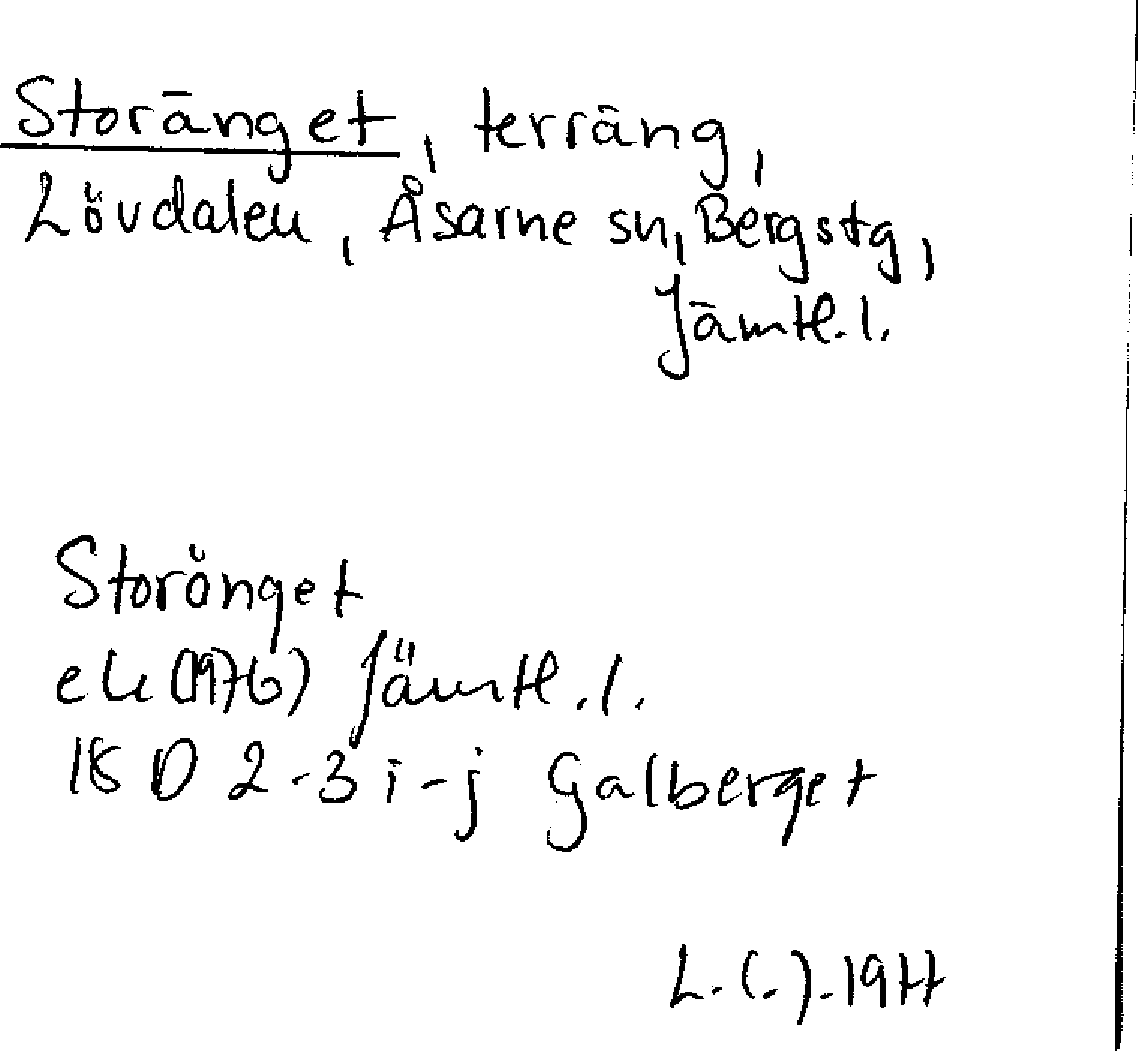 Storänget, terräng,
Lövdalen, Åsarne sn, Bergstg,
Jämtl.l.
Storänget
ek (1976) Jämtl.l.
18 D 2-3 i-j Galberget
L.(-).1977